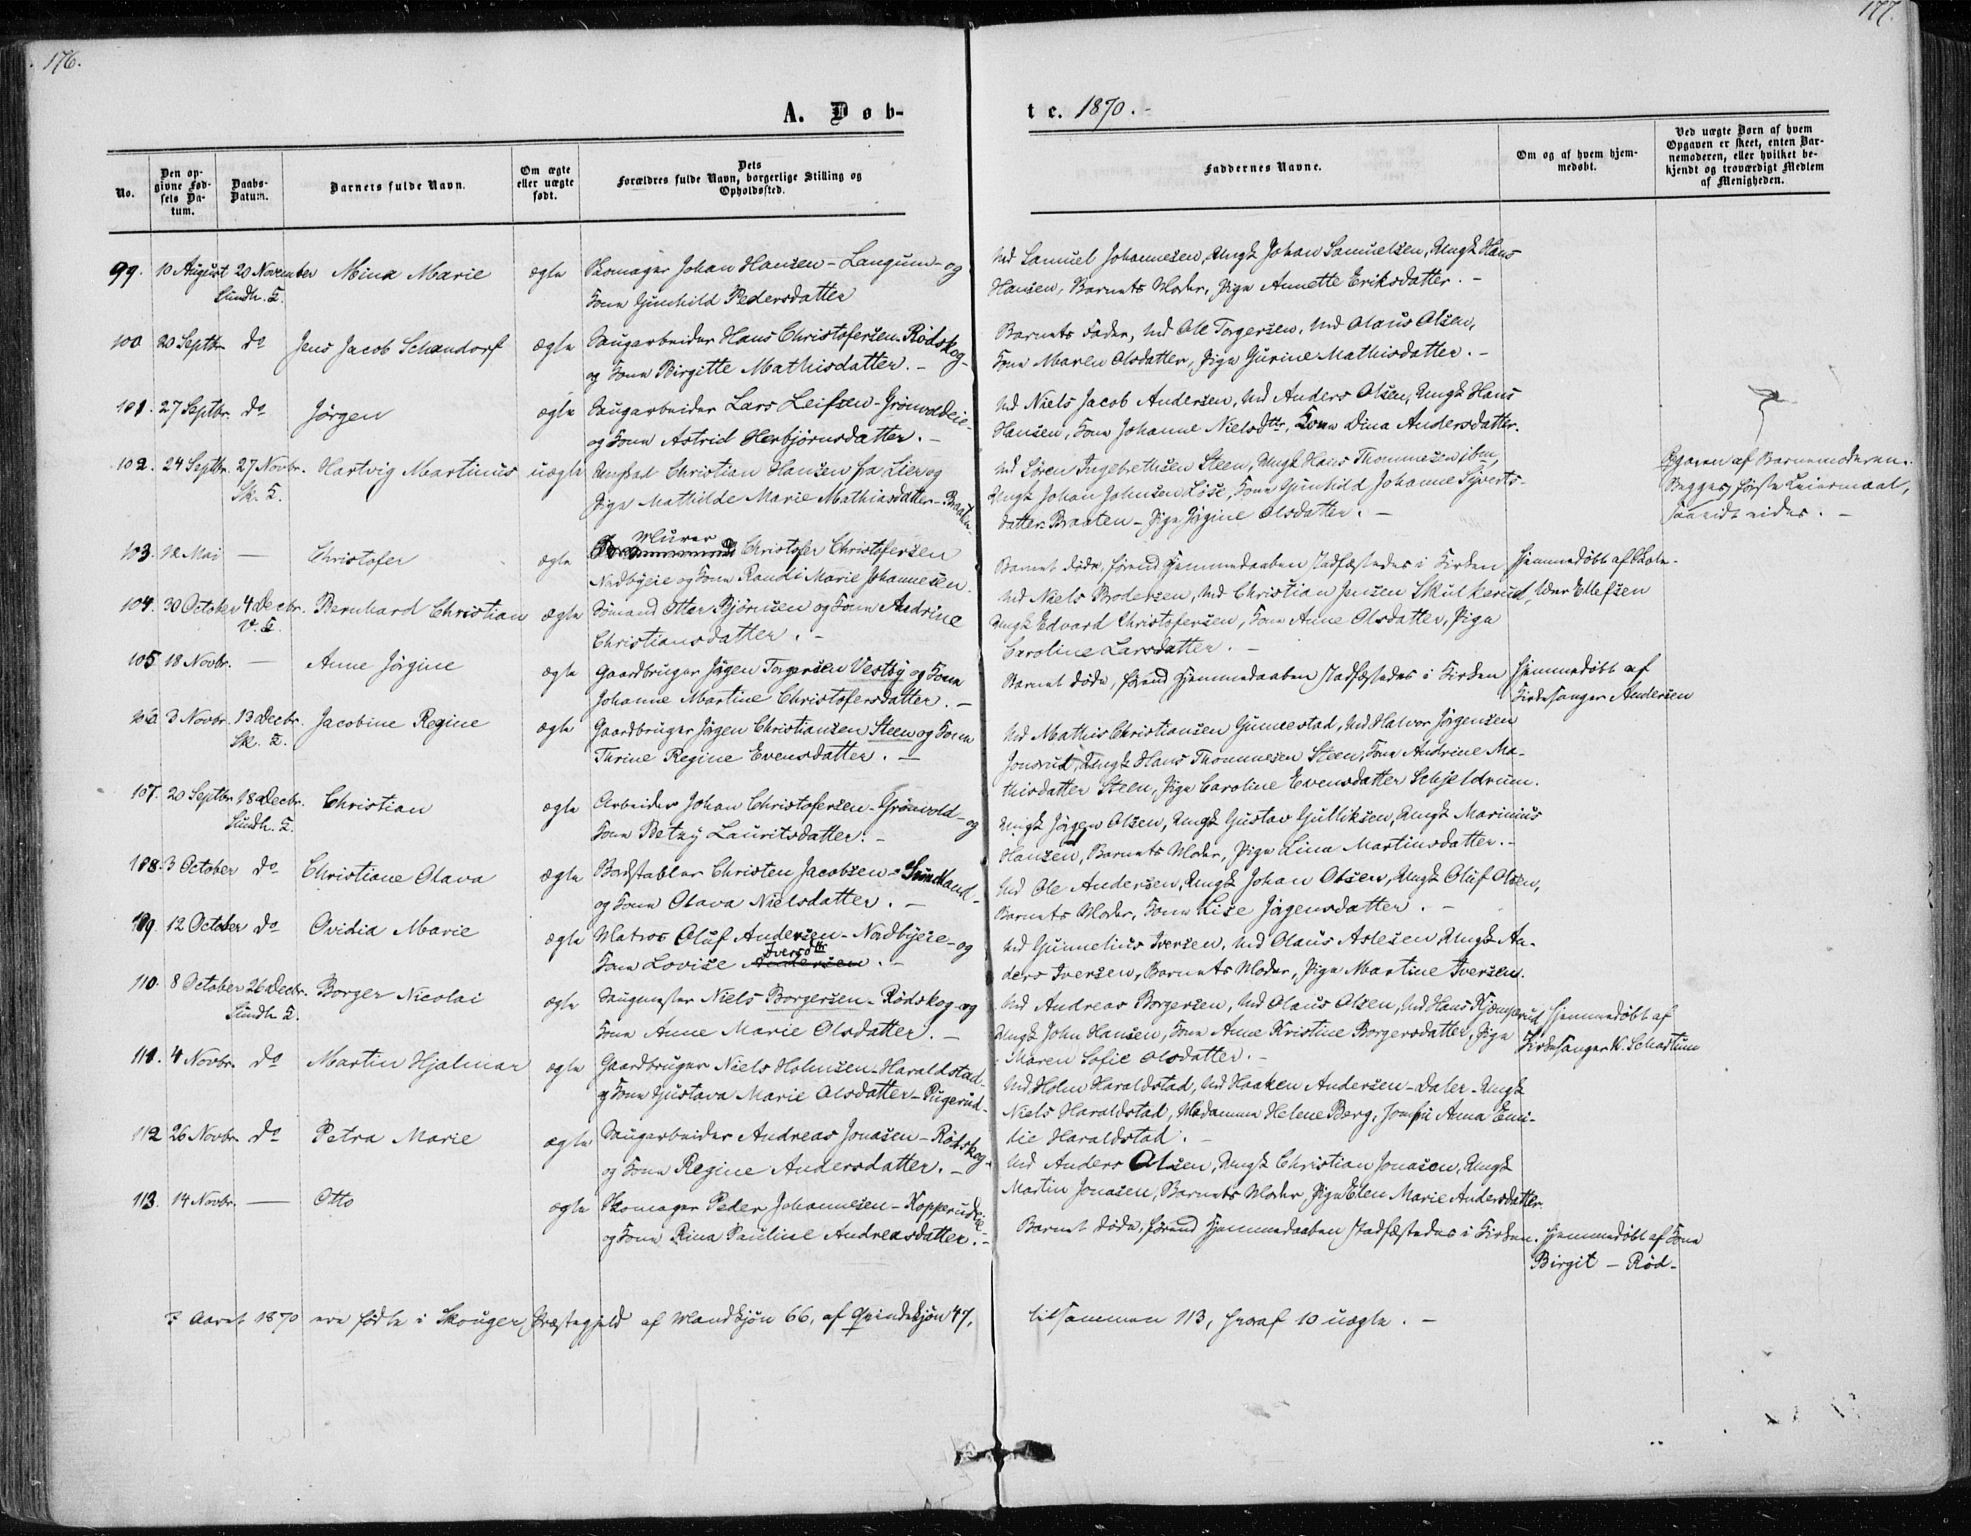 176.
177.
A. Døb-
te. 1870.-
No.
Den op-
givne Fød-
sels Da-
tum.
Daabs-
Datum.
Barnets fulde Navn.
Om ægte
eller uægte
født.
Dets
Forældres fulde Navn, borgerlige Stilling og
Opholdssted.
Faddernes Navne.
Om og af hvem hjem-
medøbt.
Ved uægte Børn af hvem
Opgaven er skeet, enten Bar-
nemoderen, eller hvilket be-
kjendt og troværdigt Medlem
af Menigheden.
99. 10 August 20 November Mina Marie ægte Skomager Johan Hansen - Langum - og
Sundh. K.
Kone Gunhild Pedersdatter
Ud Samuel Johannesen, Ungk Johan Samuelsen, Ungk Hans
Hansen, Barnets Moder, Pige Annette Eriksdatter. -
100 20 Septbr do Jens Jacob Schandorf ægte Saugarbeider Hans Christofersen - Rødskog -
og Kone Birgitte Mathisdatter. -
Barnets Fader, Ud Ole Torgersen, Ud Olaus Olsen,
Kone Maren Olsdatter, Pige Gurine Mathisdatter. -
101. 27 Septbr. do Jørgen ægte Saugarbeider Lars Leifsen - Grønvoldeie -
og Kone Astrid Herbjørnsdatter. -
Ud Niels Jacob Andersen, Ud Anders Olsen, Ungk Hans
Hansen, Kone Johanne Nielsdtr, Kone Dina Andersdatter.
102. 24 Septbr. 27 Novbr. Hartvig Martinus uægte Ungkarl Christian Hansen fra Lier og
Sk. K.
Pige Mathilde Marie Mathiasdatter - Braaten
Ud Søren Ingebrethsen Steen, Ungk Hans Thommesen ibm,
Ungk Johan Johnsen Løse, Kone Gunhild Johanne Syverts-
datter Braaten - Pige Jørgine Olsdatter. -
Opgaven af Barnemoderen.
Begges første Leiermaal,
saavidt vides. -
103. 12 Mai — Christofer ægte Murer Christofer Christofersen
Nordbyeie og Kone Randi Marie Johannesen.
Barnet døde, førend Hjemmedaaben stadfæstedes i Kirken
Hjemmedøbt af Skole-
lærer Ellefsen
104. 30 October 4 Decbr. Bernhard Christian ægte Sømand Otter Bjørnsen og Kone Andrine
V. K.
Christiansdatter. -
Ud Niels Brodersen, Ud Christian Jensen Skulkerud,
Ungk Edvard Christofersen, Kone Anne Olsdatter, Pige
Caroline Larsdatter. -
105 18 Novbr. — Anne Jørgine ægte Gaardbruger Jørgen Torgersen Vestby og Kone
Johanne Martine Christofersdatter. -
Barnet døde, førend Hjemmedaaben stadfæstedes i Kirken
Hjemmedøbt af
Kirkesanger Andersen
106. 3 Novbr. 13 Decbr. Jacobine Regine ægte Gaardbruger Jørgen Christiansen Steen og Kone
Sk. K.
Thrine Regine Evensdatter. -
Ud Mathis Christiansen Gunnestad, Ud Halvor Jørgensen
Jonsrud, Ungk Hans Thommesen Steen, Kone Andrine Ma-
thisdatter Steen, Pige Caroline Evensdatter Schjeldrum.
107. 20 Septbr 18 Decbr. Christian ægte Arbeider Johan Christofersen - Grønvold - og
Sundh. K.
Kone Betzy Lauritsdatter. -
Ungk Jørgen Olsen, Ungk Gustav Gulliksen, Ungk Marinius
Hansen, Barnets Moder, Pige Lina Martinsdatter. -
108. 3 October do Christiane Olava ægte Bordstabler Christen Jacobsen - Sundland -
og Kone Olava Nielsdatter. -
Ud Ole Andersen, Ungk Johan Olsen, Ungk Oluf Olsen,
Barnets Moder, Kone Lise Jørgensdatter. -
109. 12 October do Ovidia Marie ægte Matros Oluf Andersen - Nordbyeie - og
Kone Lovise Andersen Iversdtr. -
Ud Gunnelius Iversen, Ud Olaus Aslesen Ungk An-
ders Iversen, Barnets Moder, Pige Martine Iversen.
110. 8 October 26 Decbr. Borger Nicolai ægte Saugmester Niels Borgersen - Rødskog - og
Sundh. K.
Kone Anne Marie Olsdatter. -
Ud Andreas Borgersen, Ud Olaus Olsen, Ud Hans Kjæmperud
Ungk John Hansen, Kone Anne Kristine Borgersdatter, Pige
Maren Sofie Olsdatter. -
Hjemmedøbt af
Kirkesanger K. Schartum
111. 4 Novbr. do Martin Hjalmar ægte Gaardbruger Niels Holmsen - Haraldstad -
og Kone Gustava Marie Olsdatter - Pugerud -
Ud Holm Haraldstad, Ud Haaken Andersen - Daler - Ungk
Niels Haraldstad, Madamme Helene Berg, Jomfru Anna Emi-
lie Haraldstad. -
112 26 Novbr. do Petra Marie ægte Saugarbeider Andreas Jonasen - Rødskog -
og Kone Regine Andersdatter. -
Ud Anders Olsen, Ungk Christian Jonasen, Ungk
Martin Jonasen, Barnets Moder, Pige Elen Marie Andersdatter.
113. 14 Novbr. — Otto ægte Skomager Peder Johannesen - Kopperudeie -
og Kone Rina Pauline Andreasdatter. -
Barnet døde, førend Hjemmedaaben stadfæstedes i Kirken.
Hjemmedøbt af Kone
Birgit - Rød -
I Aaret 1870 ere fødte i Skouger Præstegjeld af Mandkjøn 66, af Qvindekjøn 47,
tilsammen 113, hvoraf 10 uægte. -